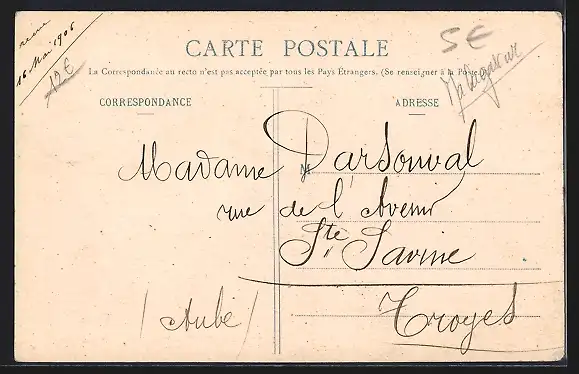 reçu
16 Mai 1906
12 €
5 €
CARTE POSTALE
La Correspondance au recto n'est pas acceptée par tous les Pays Étrangers. (Se renseigner à la Poste
CORRESPONDANCE
ADRESSE
Madame Darsonval
rue de l'Avenir
Ste Savine
Troyes
(Aube)